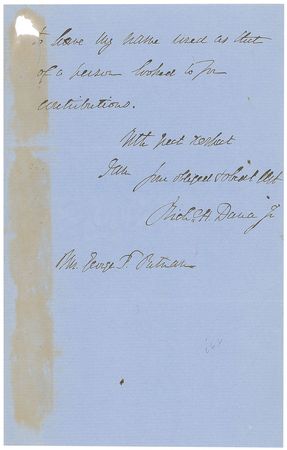 to have my name used as that
of a person looked to for
contributions.
With great respect
I am your obliged & obedt Servt
Richd H Dana Jr
Mr. George P. Putnam